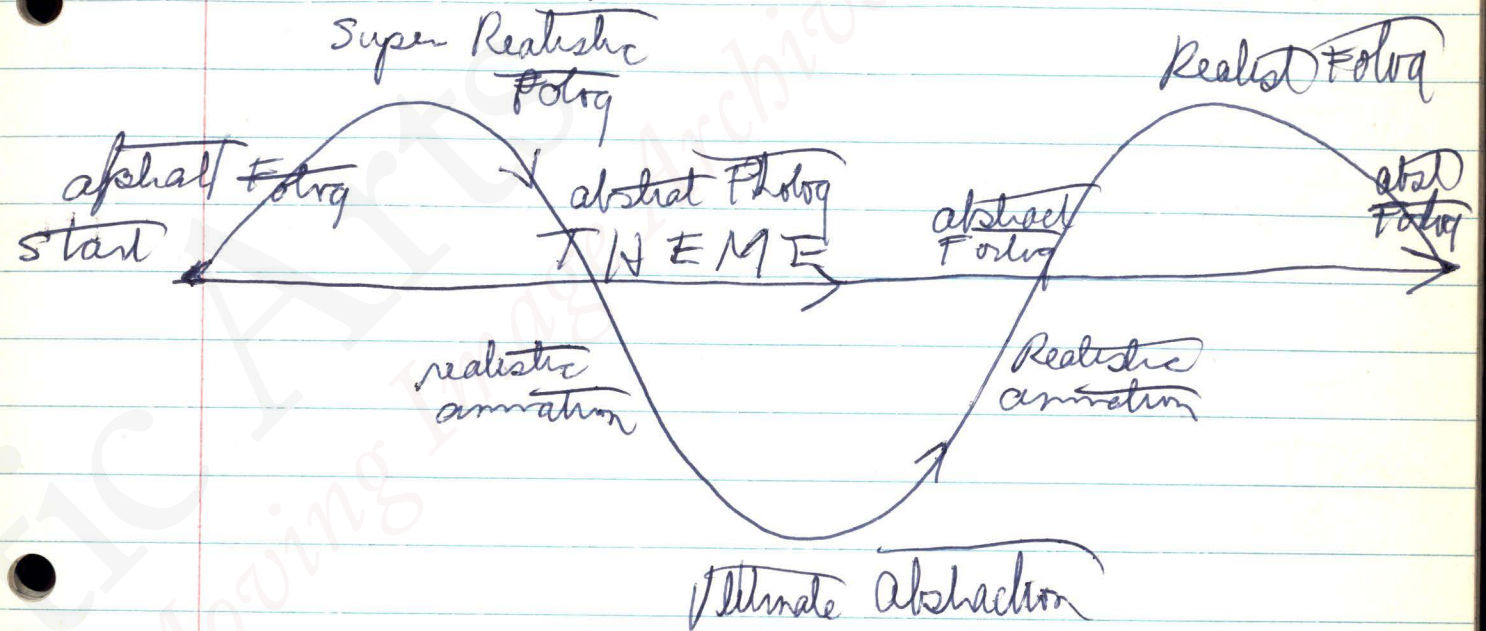 Super Realistic
Fotog
Realist Fotog
start
abstrat Fhotog
THEME
abstract
Fotog
abst
Fotog
realistic
animation
Realistic
animation
Ultimate Abstraction